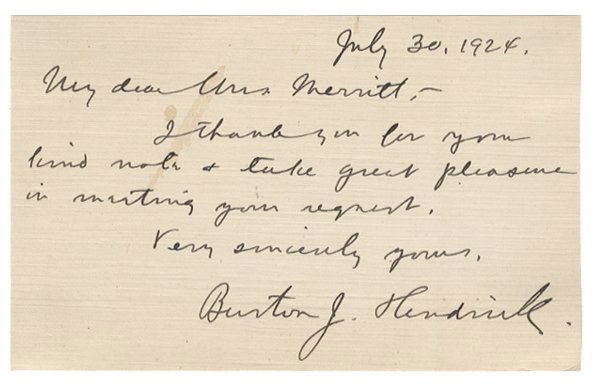 July 30, 1924.
My dear Mrs Merritt,—
I thank you for your
kind note & take great pleasure
in meeting your request.
Very sincerely yours,
Burton J. Hendrick.